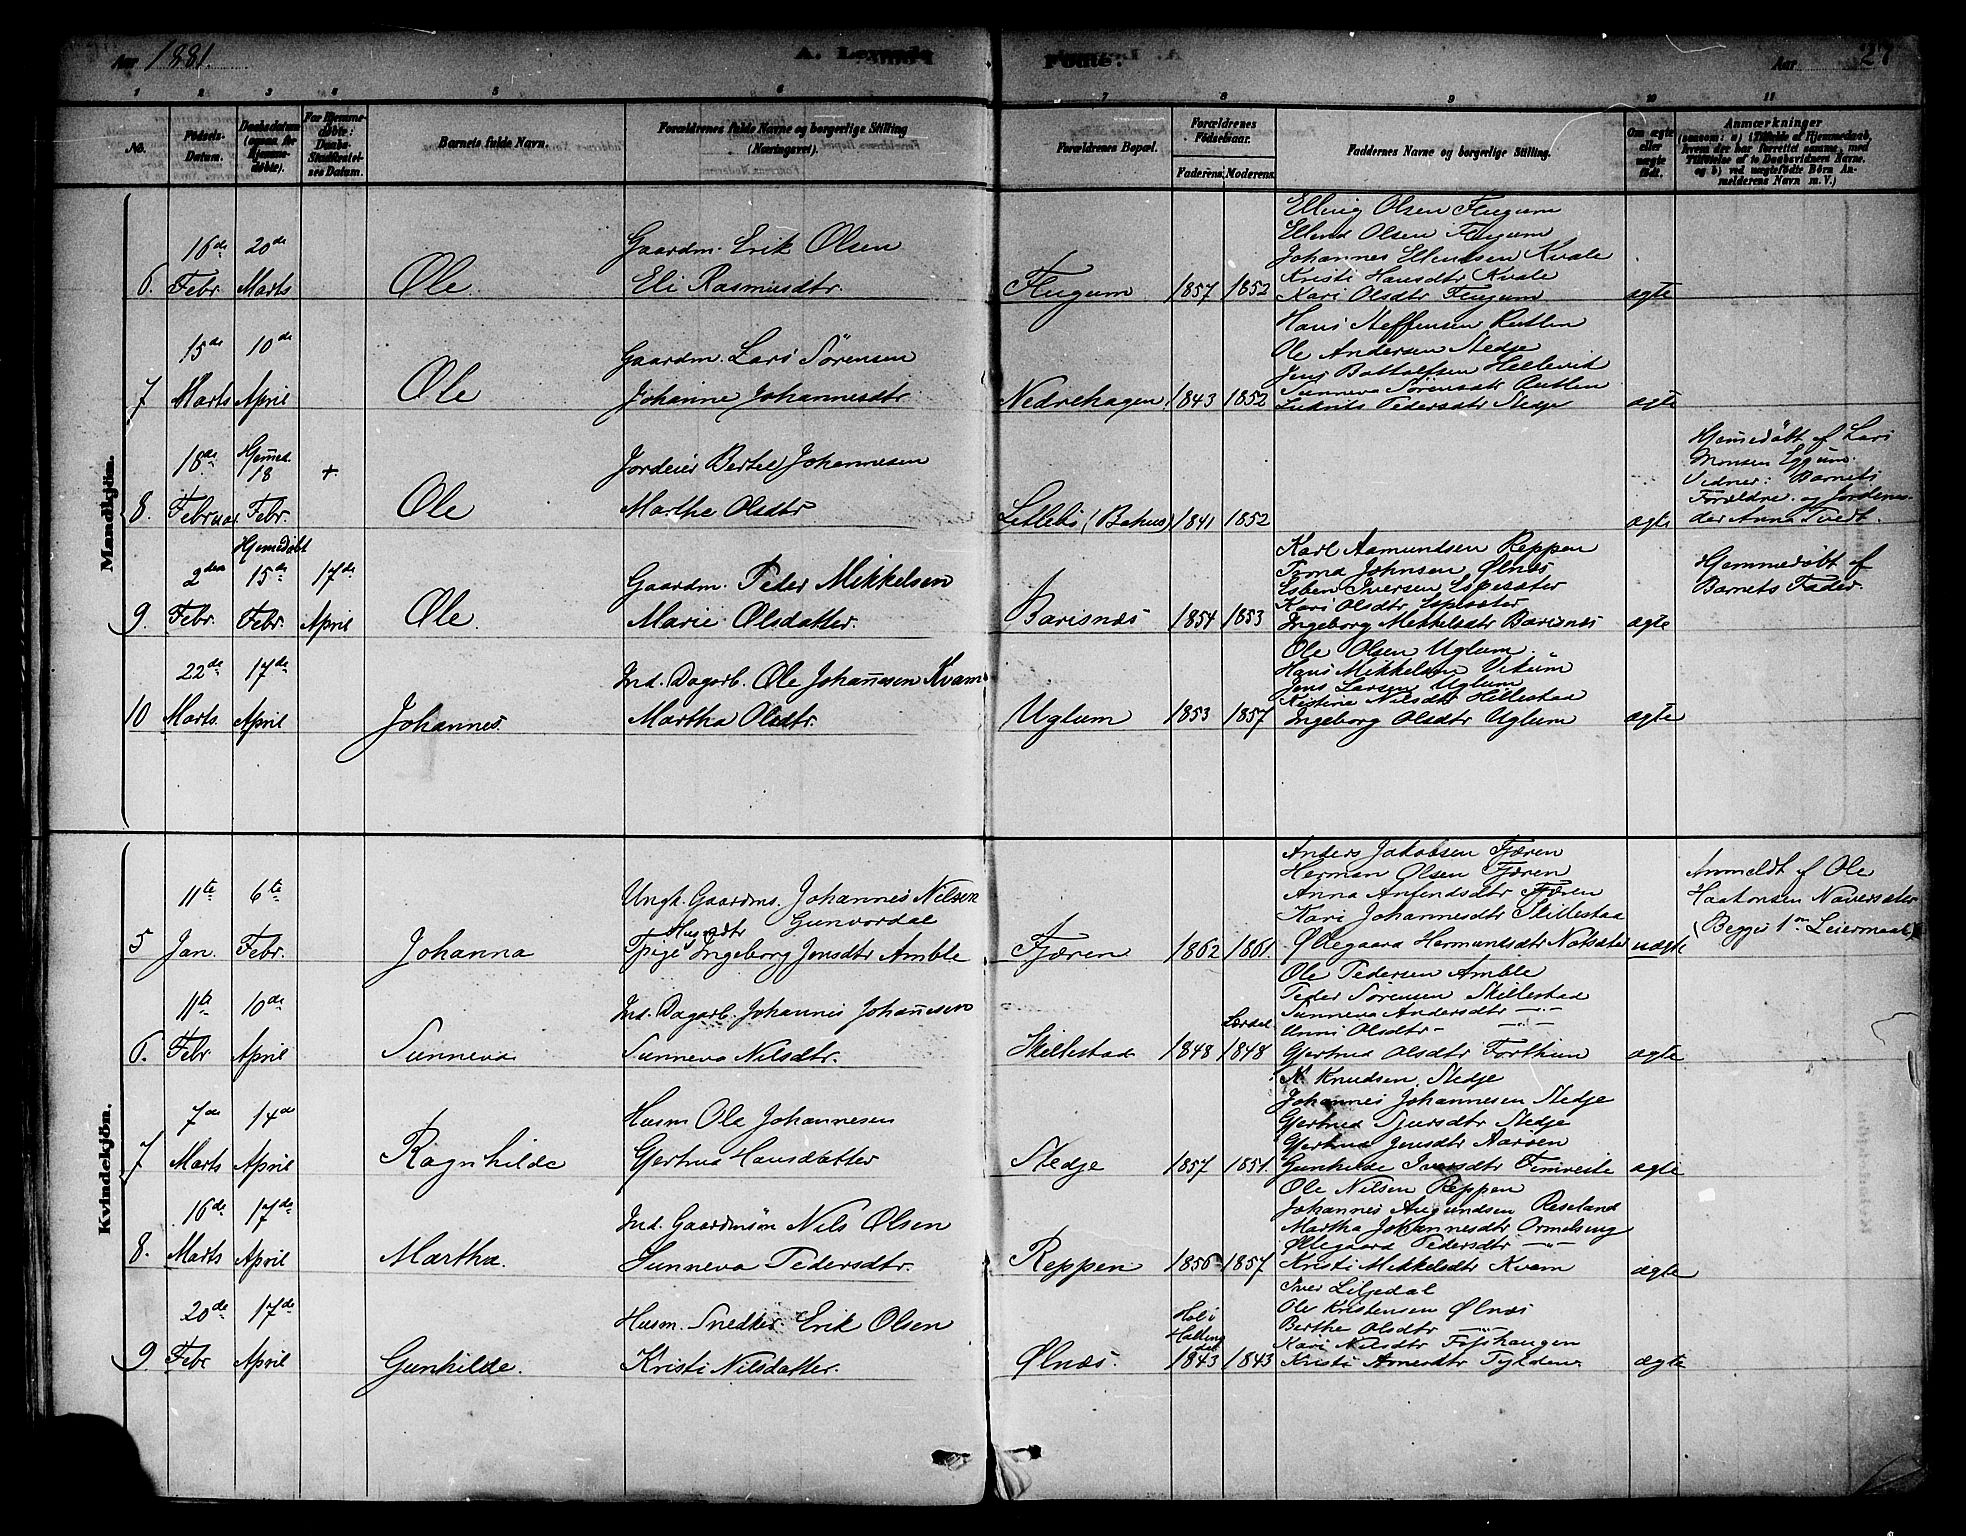 Aar 1881.
A. Levende
Födte.
Aar
27
1 2 3 4 5 6 7 8 9 10 11
No.
Födsels-Datum.
Daabsdatum (ogsaa for Hjemme-döbte).
For Hjemme-döbte: Daabs-Stadfæstel-ses Datum.
Barnets fulde Navn.
Forældrenes fulde Navne og borgerlige Stilling (Næringsvei).
Forældrenes Bopæl.
Forældrenes Födselsaar.
Faderens. Moderens.
Faddernes Navne og borgerlige Stilling.
Om ægte eller uægte födt.
Anmærkninger
(saasom: a) i Tilfælde af Hjemmedaab, hvem der har forrettet samme, med Tilföielse af to Daabsvidners Navne, og b) ved uægtefödte Börn An-melderens Navn m. V.)
Mandkjön.
6. 16de Febr. 20de Marts
Ole
Gaardm. Erik Olsen
Eli Rasmusdtr.
Flugum 1857 1852
Elling Olsen Flugum
Ellend Olsen Flugum
Johannes Ellendsen Kvale
Kristi Hansdtr Kvale
Kari Olsdtr Flugum
ægte
7 15de Marts 10de April
Ole
Gaardm. Lars Sörensen
Johanne Johannesdtr
Nedrehagen 1843 1852
Hans Steffensen Rutlin
Ole Andersen Stedje
Jens Battolfsen Hellevik
Sunneva Sörensdtr Rutlin
Pedersdtr Stedje
ægte
8. 18de Februar Hjemmed. 18 Febr. +
Ole
Jordeier Bertel Johannesen
Marthe Olsdtr
Litlebö (Bahus) 1841 1852
ægte
Hjemmedöbt af Lars
Monsen Eggum.
Vidner: Barnets
Forældre og Jordemo-
der Anna Tvedt.
9. 2den Febr. Hjemmedöbt 15de Febr. 17de April
Ole
Gaardm. Peder Mikkelsen
Marie Olsdatter.
Barsnæs 1854 1853
Karl Aamundsen Reppen
Trond Johnsen Ølnæs
Esben Iversen Espesæter
Kari Olsdtr Espesæter
Ingeborg Mikkelsdtr Barsnæs
ægte
Hjemmedöbt af
Barnets Fader.
10 22de Marts. 17de April
Johannes.
Ind. Dagarb. Ole Johannesen Kvam
Martha Olsdtr.
Uglum 1853 1857
Ole Olsen Uglum.
Hans Mikkelsen Vikum
Jens Larsen Uglum
Kistine Nilsdtr Hillestad
Ingeborg Olsdtr Uglum
ægte
Kvindekjön.
5 11te Jan. 6te Febr.
Johanna
Ungk. Gaardms. Johannes Nilsen
Gunvordal
Husmdtr
Pige Ingeborg Jensdtr Amble
Fjæren 1862 1861.
Anders Jakobsen Fjæren
Herman Olsen Fjæren
Anna Anfindsdtr Fjæren
Kari Johannesdtr Skillestad
Øllegaard Hermundsdtr Notsæter
uægte
Anmeldt af Ole
Haakonsen Navarsæter
(Begges 1ste Leiermaal)
6. 11te Febr. 10de April
Sunneva
Ind. Dagarb. Johannes Johannesen
Sunneva Nilsdtr.
Skillestad 1848 Lærdal 1848
Ole Pedersen Amble
Peder Sörensen Skillestad
Sunneva Andersdtr —"—
Unni Olsdtr —"—
Gjertrud Olsdtr Forthun
ægte
7 7de Marts 14de April
Ragnhilde
Husm. Ole Johannesen
Gjertrud Hansdatter
Stedje 1857 1851.
N. Knudsen, Stedje
Johannes Johannesen Stedje
Gjertrud Sjursdtr Stedje
Gjertrud Jensdtr Aaröen
Gunhilde Iversdtr Fimreite
ægte
8. 16de Marts 17de April
Martha.
Ind. Gaardmsön Nils Olsen
Sunneva Pedersdtr.
Reppen 1856 1857
Ole Nilsen Reppen
Johannes Augundsen Ræseland
Martha Johannesdtr Ormelseng
Øllegaard Pedersdtr —"—
Kristi Mikkelsdtr Kvam
ægte
9 20de Febr 17de April
Gunhilde.
Husm. Snedker Erik Olsen
Kristi Nilsdatter.
Ølnæs. Hol i Hallingdal 1843 1843
Iver Liljedal
Ole Kristensen Ølnæs
Berthe Olsdtr —"—
Kari Nilsdtr Foshaugen
Kristi Arnesdtr Tylden
ægte